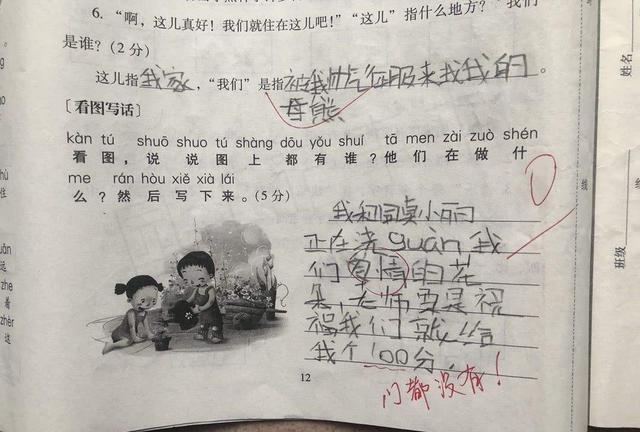 6. “啊,这儿真好!我们就住在这儿吧!”“这儿”指什么地方?“我们”
是谁?(2分)
这儿指我家,“我们”是指被我帅气征服来找我的。
母熊
[看图写话]
kàn tú shuō shuo tú shàng dōu yǒu shuí tā men zài zuò shén
看图,说说图上都有谁?他们在做什
me rán hòu xiě xià lái
么?然后写下来。(5分)
我和同桌小丽
正在浇guàn我
们真情的花
朵,老师要是祝
福我们就给
我个100分。
0
门都没有!
12
uān
远
zhe
着
zhèr
这
住
线
姓名
班级